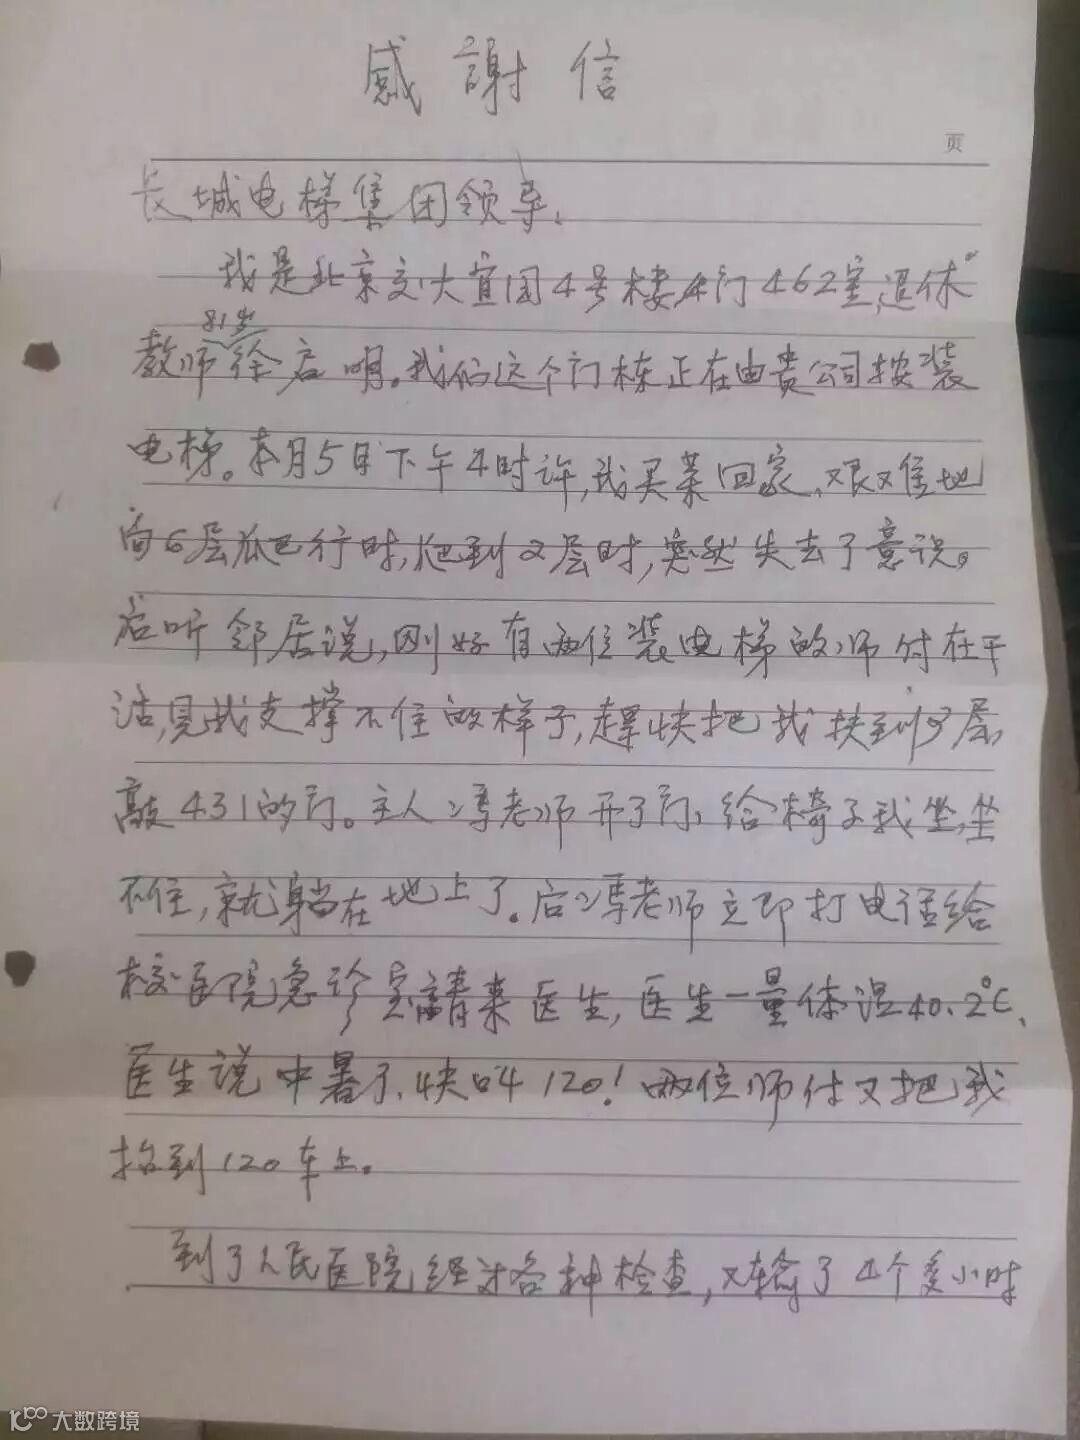 感謝信
页
长城电梯集团领导、
我是北京交大宜园4号楼4门462室,退休
81岁
教师徐启明。我们这个门栋正在由贵公司按装
电梯。本月5日下午4时许,我买菜回家、艰难地
向6层爬行时,爬到2层时,突然失去了意识。
后听邻居说,刚好有两位装电梯的师付在干
活,见我支撑不住的样子,赶快把我扶到3层,
敲431的门。主人谭老师开了门,给椅子我坐,坐
不住,就躺在地上了。后谭老师立即打电话给
校医院急诊室請来医生,医生一量体温40.2℃、
医生说中暑了、快叫120!两位师付又把我
抬到120车上。
到了人民医院经过各种检查,又输了4个多小时
大数跨境